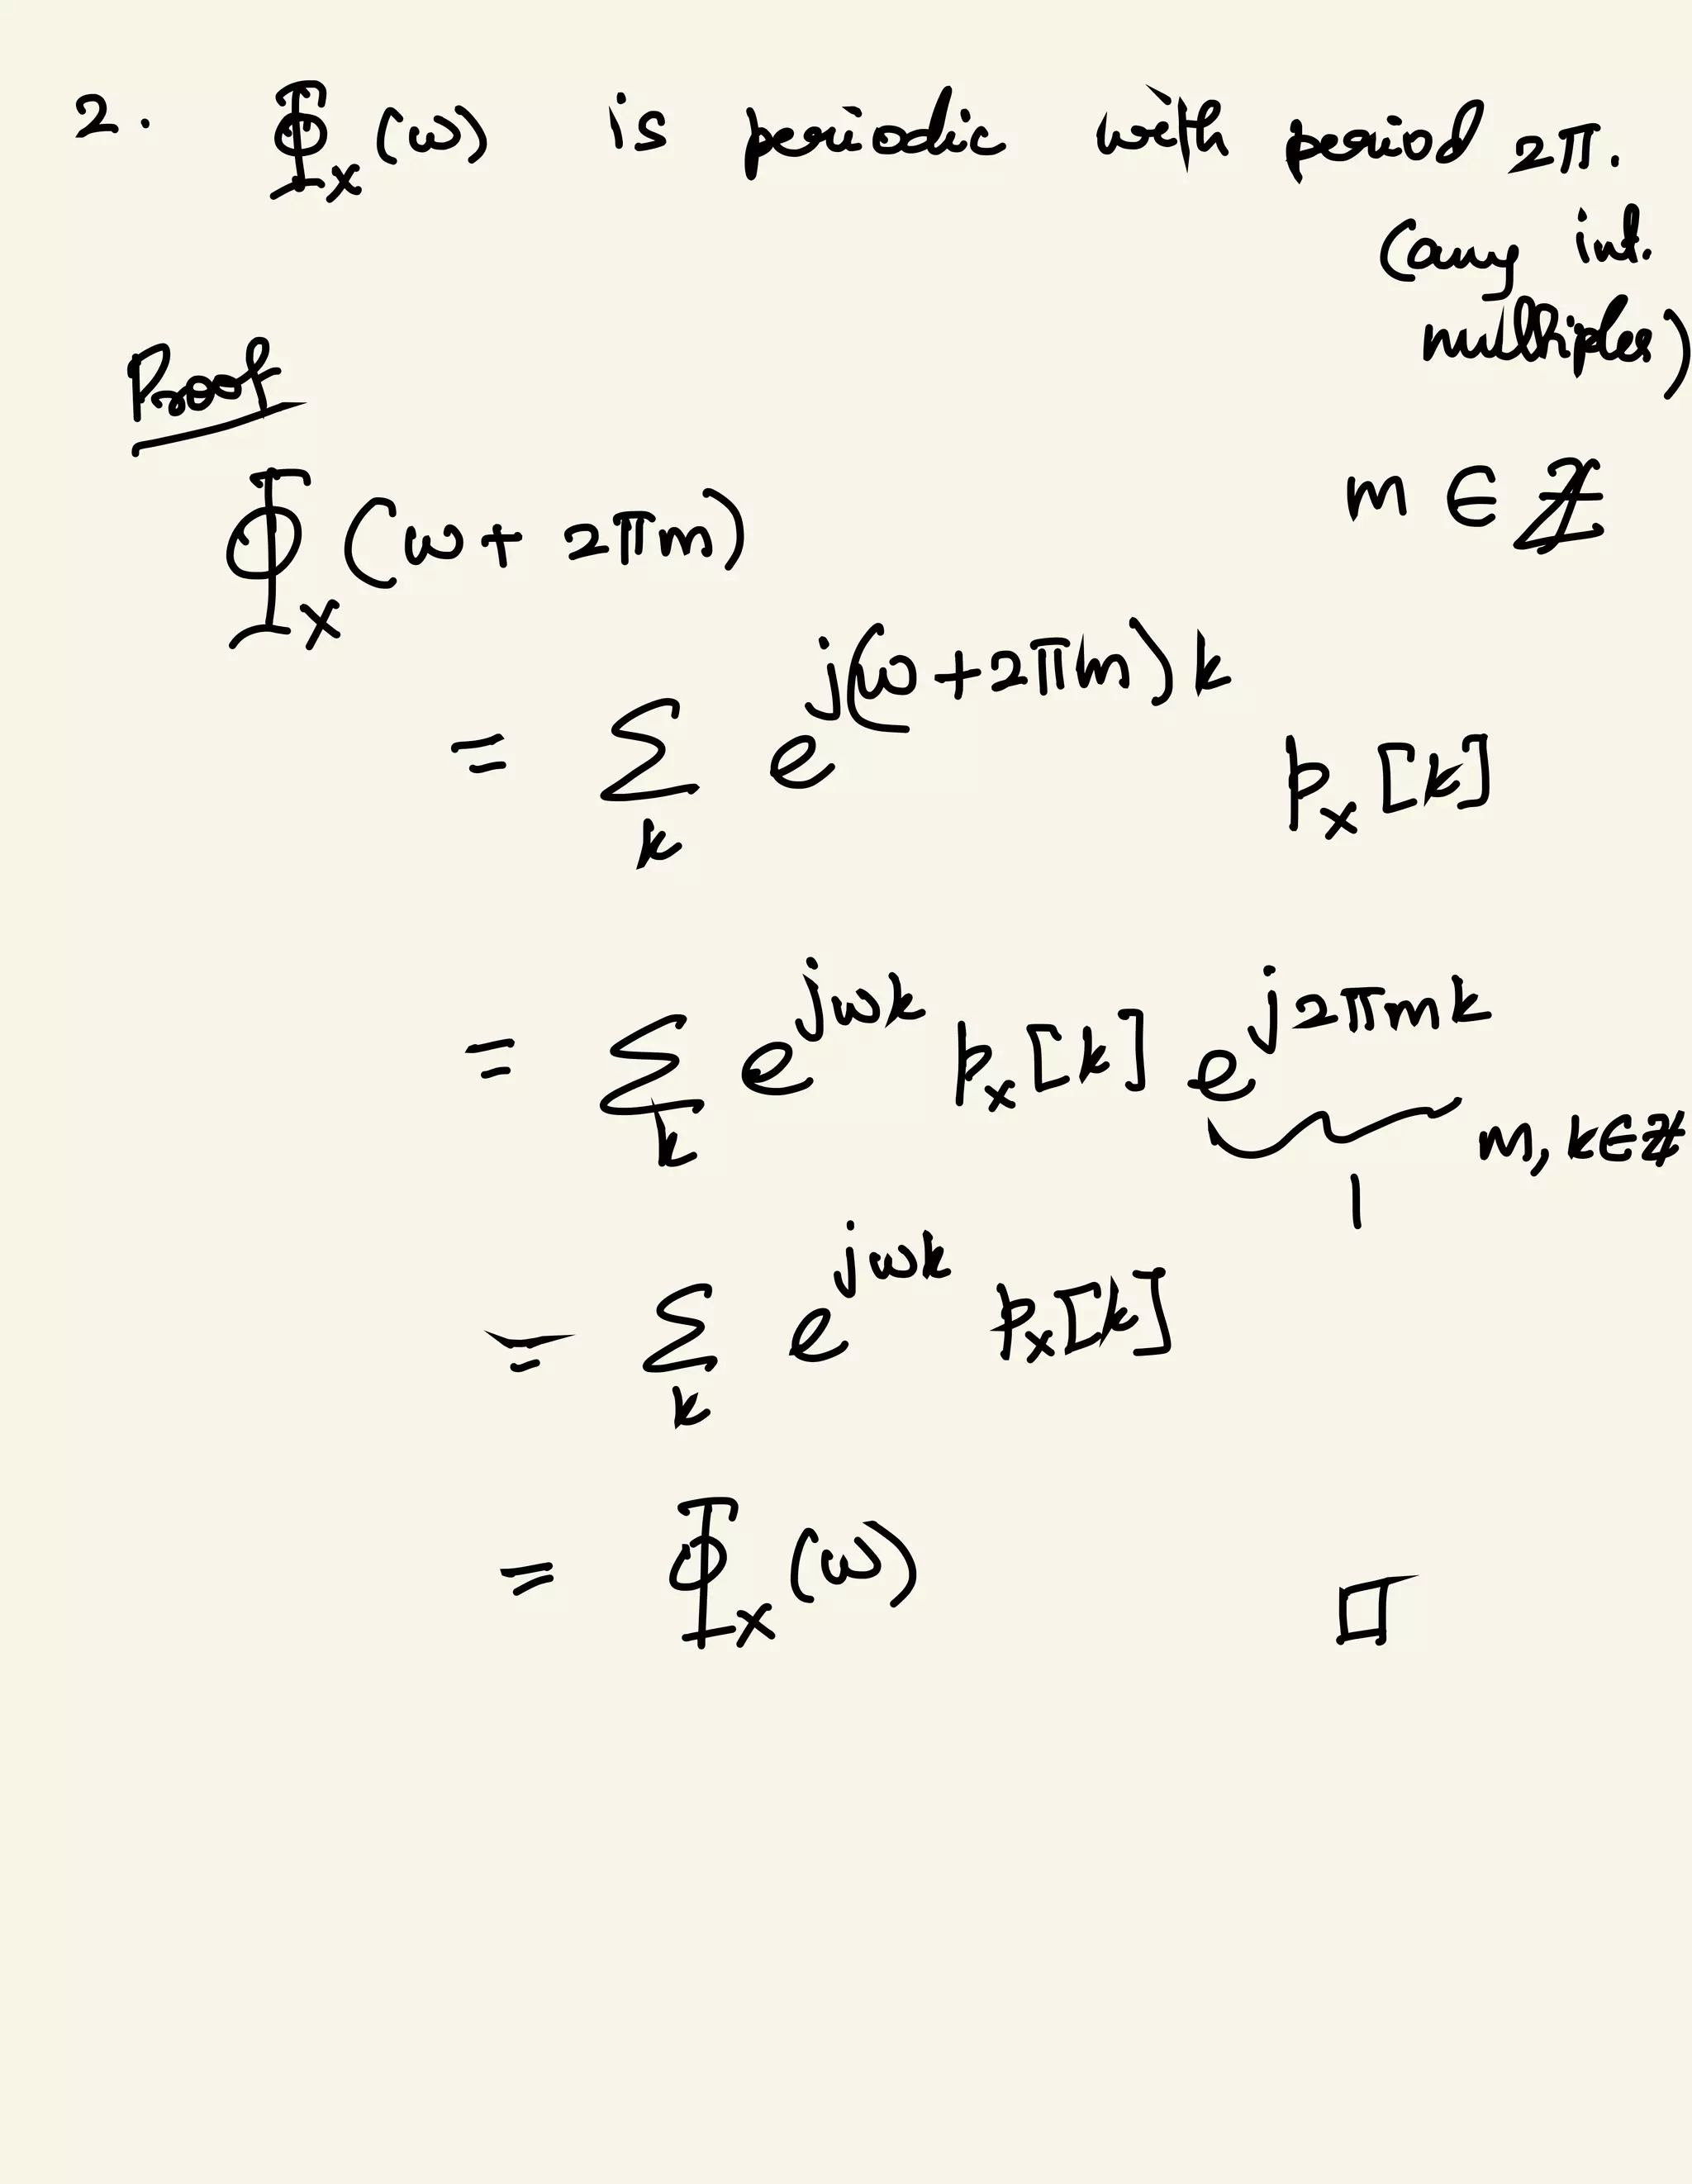 2. Φ_X(ω) is periodic with period 2π.
(any int.
multiples)
Proof
Φ_X(ω + 2πm) m ∈ ℤ
= Σ_k e^{j(ω+2πm)k} p_X[k]
= Σ_k e^{jωk} p_X[k] e^{j2πmk} m, k∈ℤ
1
= Σ_k e^{jωk} p_X[k]
= Φ_X(ω) □